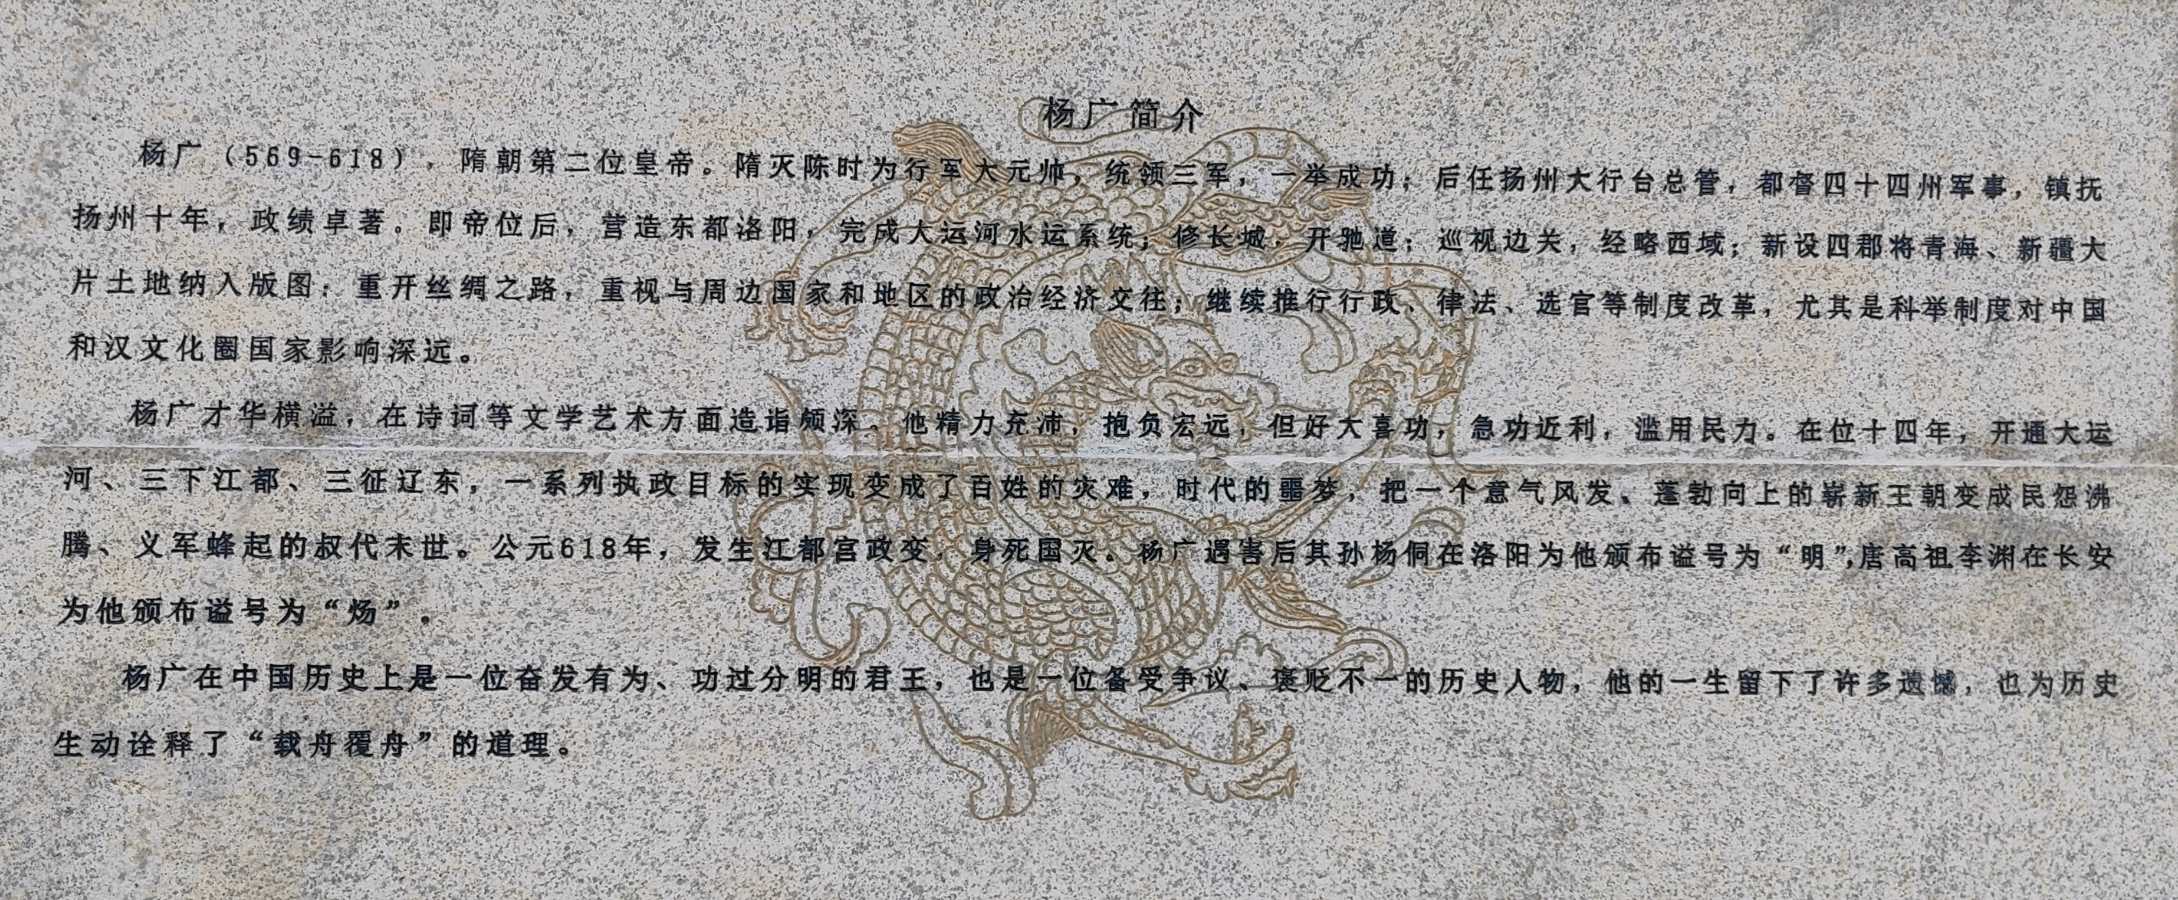 杨广简介
杨广（569-618），隋朝第二位皇帝。隋灭陈时为行军大元帅，统领三军，一举成功；后任扬州大行台总管，都督四十四州军事，镇抚
扬州十年，政绩卓著。即帝位后，营造东都洛阳，完成大运河水运系统；修长城，开驰道；巡视边关，经略西域；新设四郡将青海、新疆大
片土地纳入版图；重开丝绸之路，重视与周边国家和地区的政治经济交往；继续推行行政、律法、选官等制度改革，尤其是科举制度对中国
和汉文化圈国家影响深远。
杨广才华横溢，在诗词等文学艺术方面造诣颇深。他精力充沛，抱负宏远，但好大喜功，急功近利，滥用民力。在位十四年，开通大运
河、三下江都、三征辽东，一系列执政目标的实现变成了百姓的灾难，时代的噩梦，把一个意气风发、蓬勃向上的崭新王朝变成民怨沸
腾、义军蜂起的叔代末世。公元618年，发生江都宫政变，身死国灭。杨广遇害后其孙杨侗在洛阳为他颁布谥号为“明”，唐高祖李渊在长安
为他颁布谥号为“炀”。
杨广在中国历史上是一位奋发有为、功过分明的君王，也是一位备受争议、褒贬不一的历史人物，他的一生留下了许多遗憾，也为历史
生动诠释了“载舟覆舟”的道理。